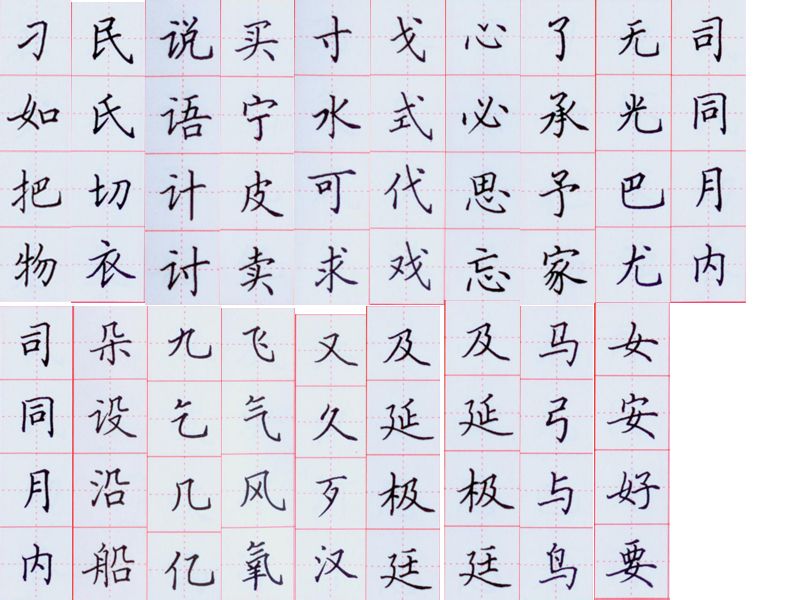 刁民说买寸戈心了无司
如氏语宁水式必承光同
把切计皮可代思予巴月
物衣讨卖求戏忘家尤内
司朵九飞又及及马女
同设乞气久延延弓安
月沿几风歹极极与好
内船亿氧汉廷廷鸟要